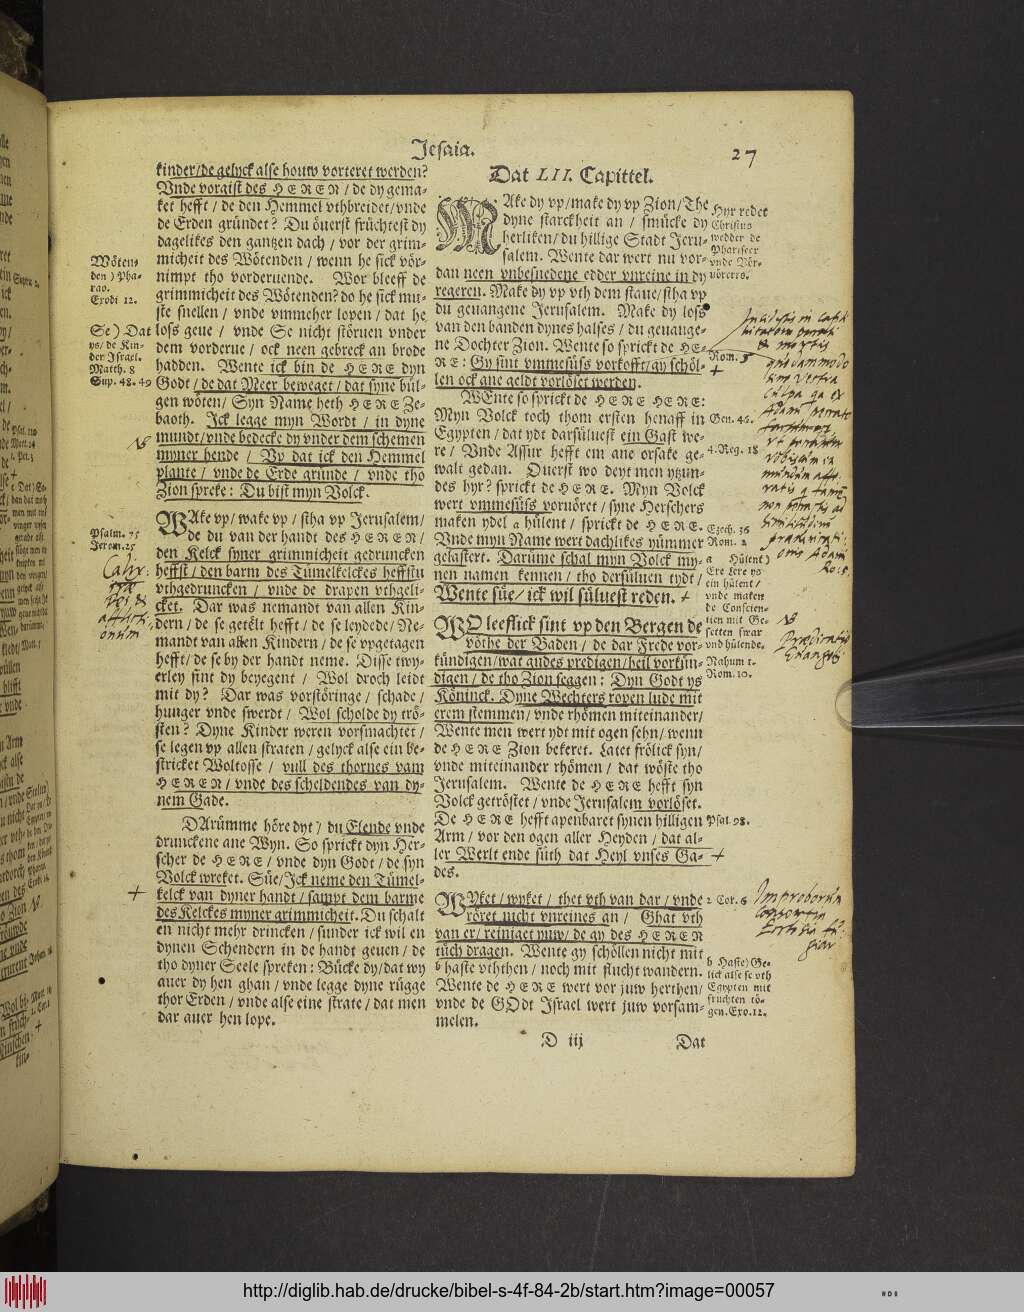 Jesaia.
27
kinder/de gelyck alse houw vorteret werden?
Vnde vorgist des HEREN/de dy gema-
ket hefft/de den Hemmel vthbreidet/vnde
de Erden gründet? Du öuerst früchtest dy
dagelikes den gantzen dach/vor der grim-
micheit des Wötenden/wenn he sick vör-
nimpt tho vorderuende. Wor bleeff de
grimmicheit des Wötenden? do he sick mu-
ste snellen/vnde vmmeher lopen/dat he
loss geue/vnde Se nicht störuen vnder
dem vorderue/ock neen gebreck an brode
hadden. Wente ick bin de HERE dyn
Godt/de dat Meer beweget/dat syne bül-
gen wöten/Syn Name heth HERE Ze-
baoth. Ick legge myn Wordt/in dyne
mundt/vnde bedecke dy vnder dem schemen
myner hende/Vp dat ick den Hemmel
plante/vnde de Erde gründe/vnde tho
Zion spreke: Du bist myn Volck.
WAke vp/wake vp/stha vp Jerusalem/
de du van der handt des HEREN/
den Kelck syner grimmicheit gedruncken
heffst/den barm des Tümelkelckes heffstu
vthgedruncken/vnde de drapen vthgeli-
cket. Dar was nemandt van allen Kin-
dern/de se getelt hefft/de se leydede/Ne-
mandt van allen Kindern/de se vpgetagen
hefft/de se by der handt neme. Disse twy-
erley sint dy beyegent/Wol droch leidt
mit dy? Dar was vorstöringe/schade/
hunger vnde swerdt/Wol scholde dy trö-
sten? Dyne Kinder weren vorsmachtet/
se legen vp allen straten/gelyck alse ein be-
stricket Woltosse/vull des thornes vam
HEREN/vnde des scheldendes van dy-
nem Gade.
DArümme höre dyt/du Elende vnde
drunckene ane Wyn. So sprickt dyn Her-
scher de HERE/vnde dyn Godt/de syn
Volck wreket. Süe/Ick neme den Tümel-
kelck van dyner handt/sampt dem barme
des Kelckes myner grimmicheit. Du schalt
en nicht mehr drincken/sunder ick wil en
dynen Schendern in de handt geuen/de
tho dyner Seele spreken: Bücke dy/dat wy
auer dy hen ghan/vnde legge dyne rügge
thor Erden/vnde alse eine strate/dat men
dar auer hen lope.
Wöten-
den) Pha-
rao.
Exodi 12.
Se) Dat
ys/de Kin-
der Israel.
Matth. 8
Sup. 48. 49
NB
Psalm. 75
Jerem. 25
+
Dat LII. Capittel.
MAke dy vp/make dy vp Zion/The
dyne starckheit an/smücke dy
herliken/du hillige Stadt Jeru-
salem. Wente dar wert nu vor-
dan neen vnbesnedene edder vnreine in dy
regeren. Make dy vp vth dem staue/stha vp
du geuangene Jerusalem. Make dy loss
van den banden dynes halses/du geuange-
ne Dochter Zion. Wente so sprickt de HE-
RE: Gy sint vmmesüss vorkofft/gy schöl-
len ock ane geldt vorlöset werden.
WEnte so sprickt de HERE HERE:
Myn Volck toch thom ersten henaff in
Egypten/dat ydt darsüluest ein Gast we-
re/Vnde Assur hefft em ane orsake ge-
walt gedan. Ouerst wo deyt men ytzun-
des hyr? sprickt de HERE. Myn Volck
wert vmmesüss voruöret/syne Herschers
maken ydel a hülent/sprickt de HERE.
Vnde myn Name wert dachlikes yümmer
gelastert. Darüme schal myn Volck my-
nen namen kennen/tho dersüluen tydt/
Wente süe/ick wil süluest reden. +
WO leefflick sint vp den Bergen de
vöthe der Baden/de dar Frede vor-
kündigen/wat gudes predigen/heil vorkün-
digen/de tho Zion seggen: Dyn Godt ys
Köninck. Dyne Wechters ropen lude mit
erem stemmen/vnde rhömen miteinander/
Wente men wert ydt mit ogen sehn/wenn
de HERE Zion bekeret. Latet frölick syn/
vnde miteinander rhömen/dat wöste tho
Jerusalem. Wente de HERE hefft syn
Volck getröstet/vnde Jerusalem vorlöset.
De HERE hefft apenbaret synen hilligen
Arm/vor den ogen aller Heyden/dat al-
ler Werlt ende süth dat Heyl vnses Ga-
des.
WYket/wyket/thet vth van dar/vnde
röret nicht vnreines an/Ghat vth
van er/reiniget yuw/de gy des HEREN
tüch dragen. Wente gy schöllen nicht mit
b haste vththen/noch mit flucht wandern.
Wente de HERE wert vor juw herthen/
vnde de GOdt Israel wert juw vorsam-
melen.
D iij
Dat
Hyr redet
Christus
wedder de
Phariseer
vnde Vör-
vörerrs.
Rom. 5
+
Gen. 46.
4. Reg. 18
Ezech. 36
Rom. 2
a Hülent)
Ere Lere ys
ein hülent/
vnde maken
de Conscien-
tien mit Ge-
setten swar
vnd hülende.
Nahum 1.
Rom. 10.
NB
Psal. 98.
+
2 Cor. 6
b Haste) Ge-
lick alse se vth
Egypten mit
früchten tö-
gen. Exo. 12.
http://diglib.hab.de/drucke/bibel-s-4f-84-2b/start.htm?image=00057